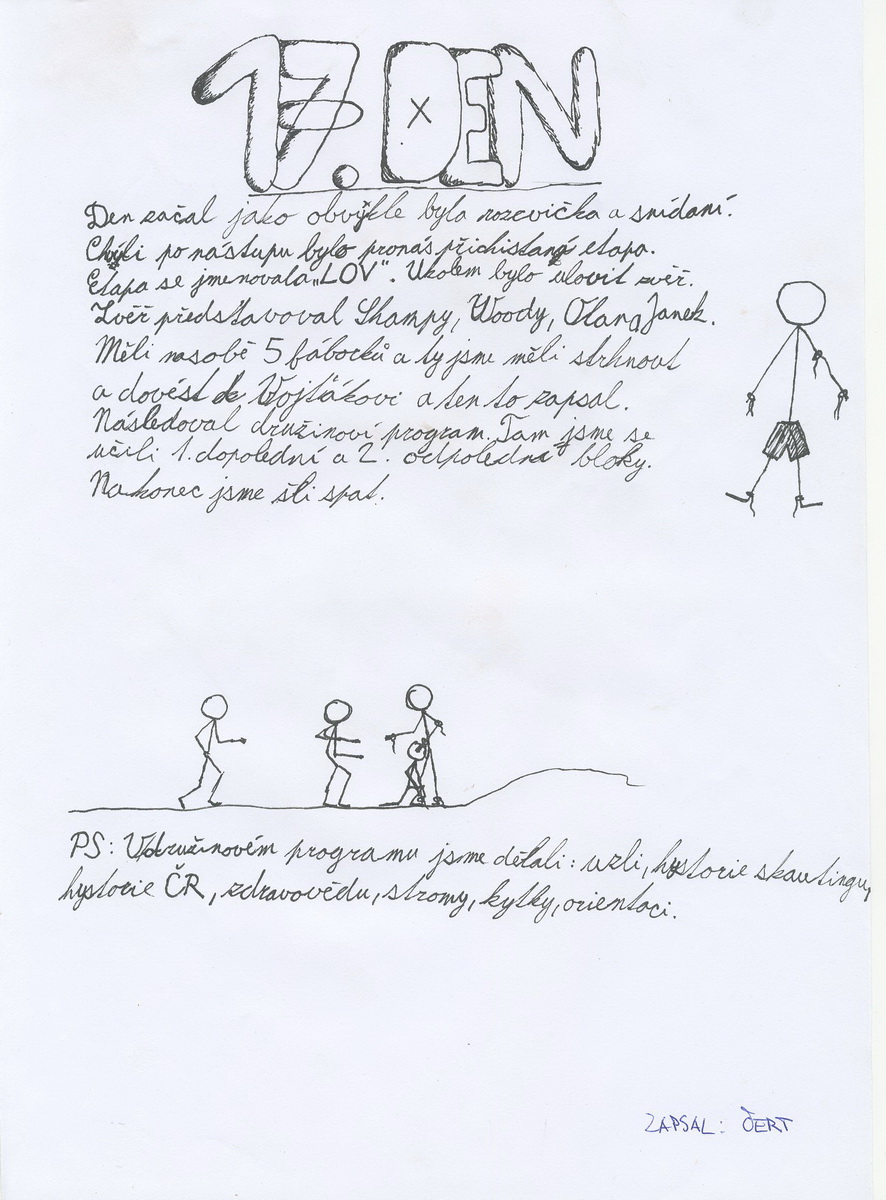 17. DEN
Den začal jako obvykle byla rozcvička a snídaní.
Chvíli po nástupu bylo pronás přichistaná etapa.
Etapa se jmenovala „LOV“. Úkolem bylo ulovit zvěř.
Zvěř představoval Shampy, Woody, Olan a Janek.
Měli nasobě 5 fáborků a ty jsme měli strhnout
a dovést k Vojťákovi a ten to zapsal.
Následoval družinoví program. Tam jsme se
učili 1. dopolední a 2. odpoledna bloky.
Nakonec jsme šli spat.
PS: Vdružinovém programu jsme dělali: uzli, hystorie skautingu,
hystorie ČR, zdravovědu, stromy, kytky, orientaci.
ZAPSAL: ČERT